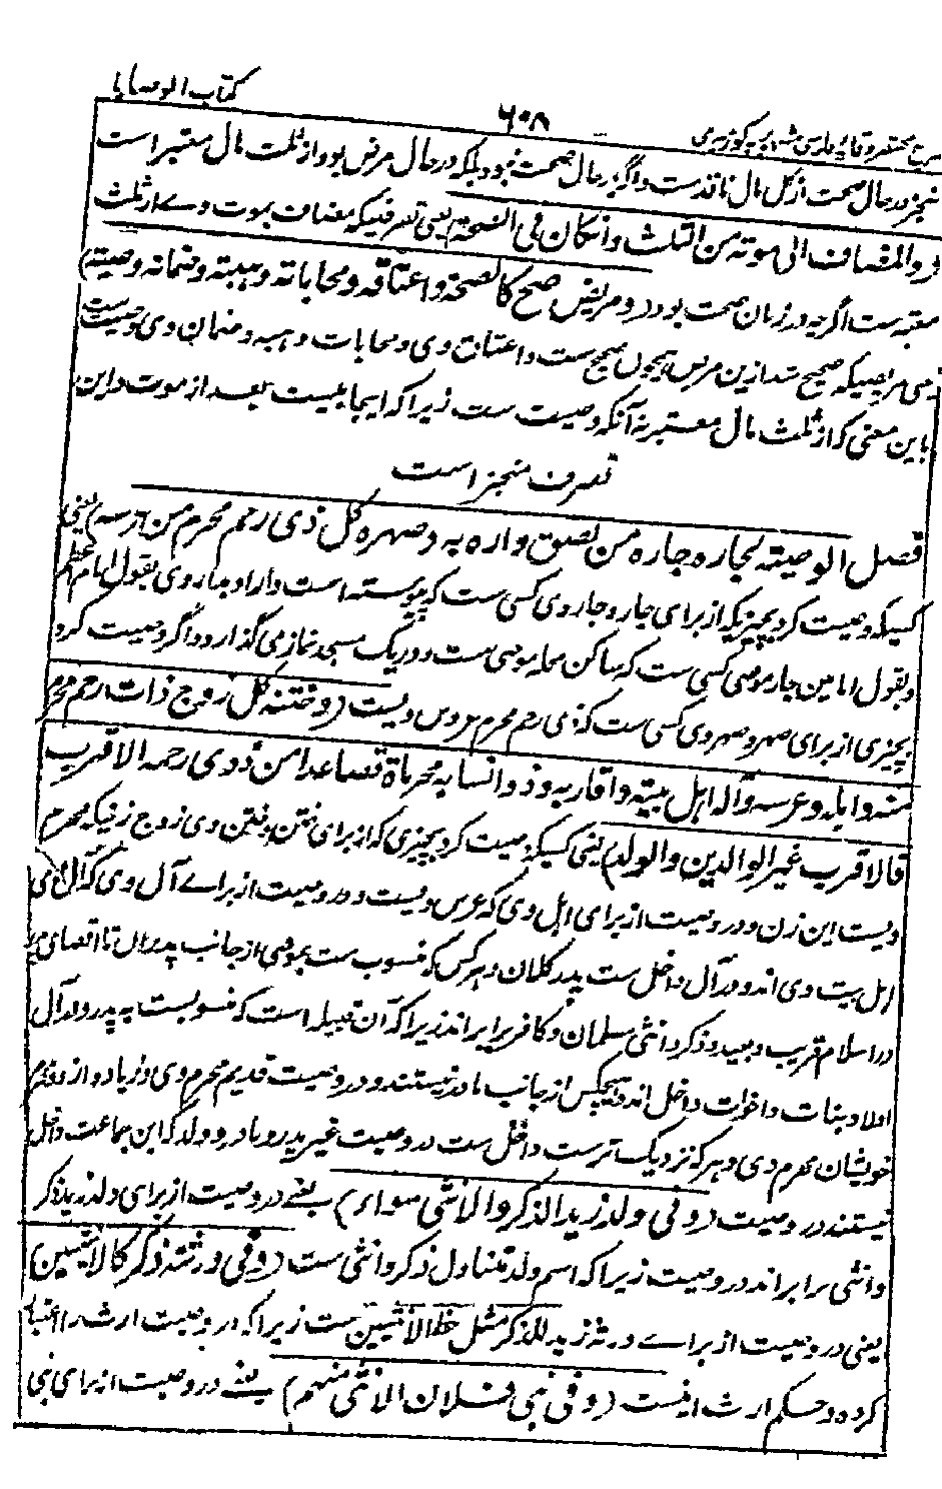 کتاب الوصایا
۶۰۸
شرح مختصر وقایه فارسی مشهور به کوز هری
منجز در حال صحت از کل مال نافذست واگر در حال صحت نبود بلکه در حال مرض بود از ثلث مال معتبر است
والمضاف الی موته من الثلث وان کان فی الصحة) یعنی تصرفیکه مضاف بموت وے از ثلث
معتبرست اگرچه در زمان صحت بود (ومریض صح کالصحة واعتاقه ومحاباته وهبته وضمانه وصیته)
یعنی مریضیکه صحیح شد ازین مرض همچون صحیح ست و اعتاق وی و محابات و هبه و ضمان وی وصیت ست
باین معنی که از ثلث مال معتبر نه آنکه وصیت ست زیرا که ایجابیست بعد از موت و این
تصرف منجز است
فصل الوصیة لجاره جاره من لصق داره به وصهره کل ذی رحم محرم من عرسه) یعنی
کسیکه وصیت کرد بچیزیکه از برای جار و جار وی کسی ست که پیوسته است دار او بدار وی بقول امام اعظم
وبقول امامین جار موصی کسی ست که ساکن محله موصی ست و در یک مسجد نماز می گذارد و اگر وصیت کرد
بچیزی از برای صهر و صهر وی کسی ست که ذی رحم محرم عروس ویست (وختنه کل زوج ذات رحم محرم
منه واهله وعرسه وآله اهل بیته واقاربه وذو انسابه محرماه فصاعدا من ذوی رحمه الاقرب
فالاقرب غیر الوالدین والولد) یعنی کسیکه وصیت کرد بچیزی که از برای ختن و ختن وی زوج زنیکه محرم
ویست این زن و در وصیت از برای اهل وی که عرس ویست و در وصیت از براے آل وی که آل وی
اهل بیت وی اند و در آل داخل ست پدر کلان و هر کس که منسوب ست بموصی از جانب پدران تا اقصای پدر
در اسلام قریب و بعید و ذکر و انثی مسلمان و کافر برابر اند زیرا که آن قبیله است که منسوبست به پدر و در آل
اولاد بنات و اخوات داخل اند و هیچکس از جانب مادر نیستند و در وصیت قدیم محرم وی و زیاده از دو محرم
خویشان محرم وی و هر که نزدیک ترست داخل ست در وصیت غیر پدر و مادر و ولد که این جماعت داخل
نیستند در وصیت (وفی ولد زید الذکر والانثی سواء) یعنے در وصیت از برای ولد زید ذکر
وانثی برابر اند در وصیت زیرا که اسم ولد متناول ذکر وانثی ست (وفی ورثته ذکر کالانثیین)
یعنی در وصیت از براے ورثه زید للذکر مثل حظ الانثیین ست زیرا که در وصیت ارث را اعتبار
کرده و حکم ارث اینست (وفی بنی فلان الانثی منهم) یعنے در وصیت از برای بنی